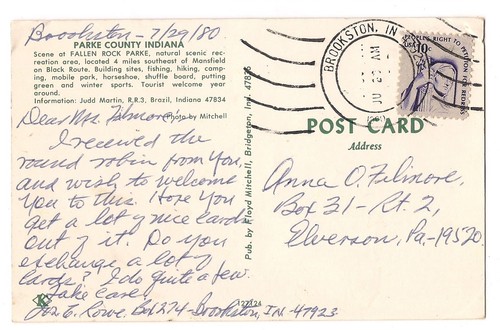 Brookston - 7/29/80
PARKE COUNTY INDIANA
Scene at FALLEN ROCK PARKE, natural scenic recreation area, located 4 miles southeast of Mansfield on Black Route. Building sites, fishing, hiking, camping, mobile park, horseshoe, shuffle board, putting green and winter sports. Tourist welcome year around.
Information: Judd Martin, R.R.3, Brazil, Indiana 47834
(Photo by Mitchell
Dear Mrs. Filmore,
I received the
round robin from you
and wish to welcome
you to this. Hope you
get a lot of nice cards
out of it. Do you
exchange a lot of
cards? I do quite a few.
Take care,
E. Rowe, Box 274 - Brookston, IN - 47923
Pub. by Floyd Mitchell, Bridgeton, Ind. 47836
127424
K
BROOKSTON, IN
AM
PEOPLE'S RIGHT TO PETITION FOR REDRESS
USA 10c
POST CARD
Address
Anna O. Filmore,
Box 31 - Rt. 2,
Elverson, Pa - 19520.